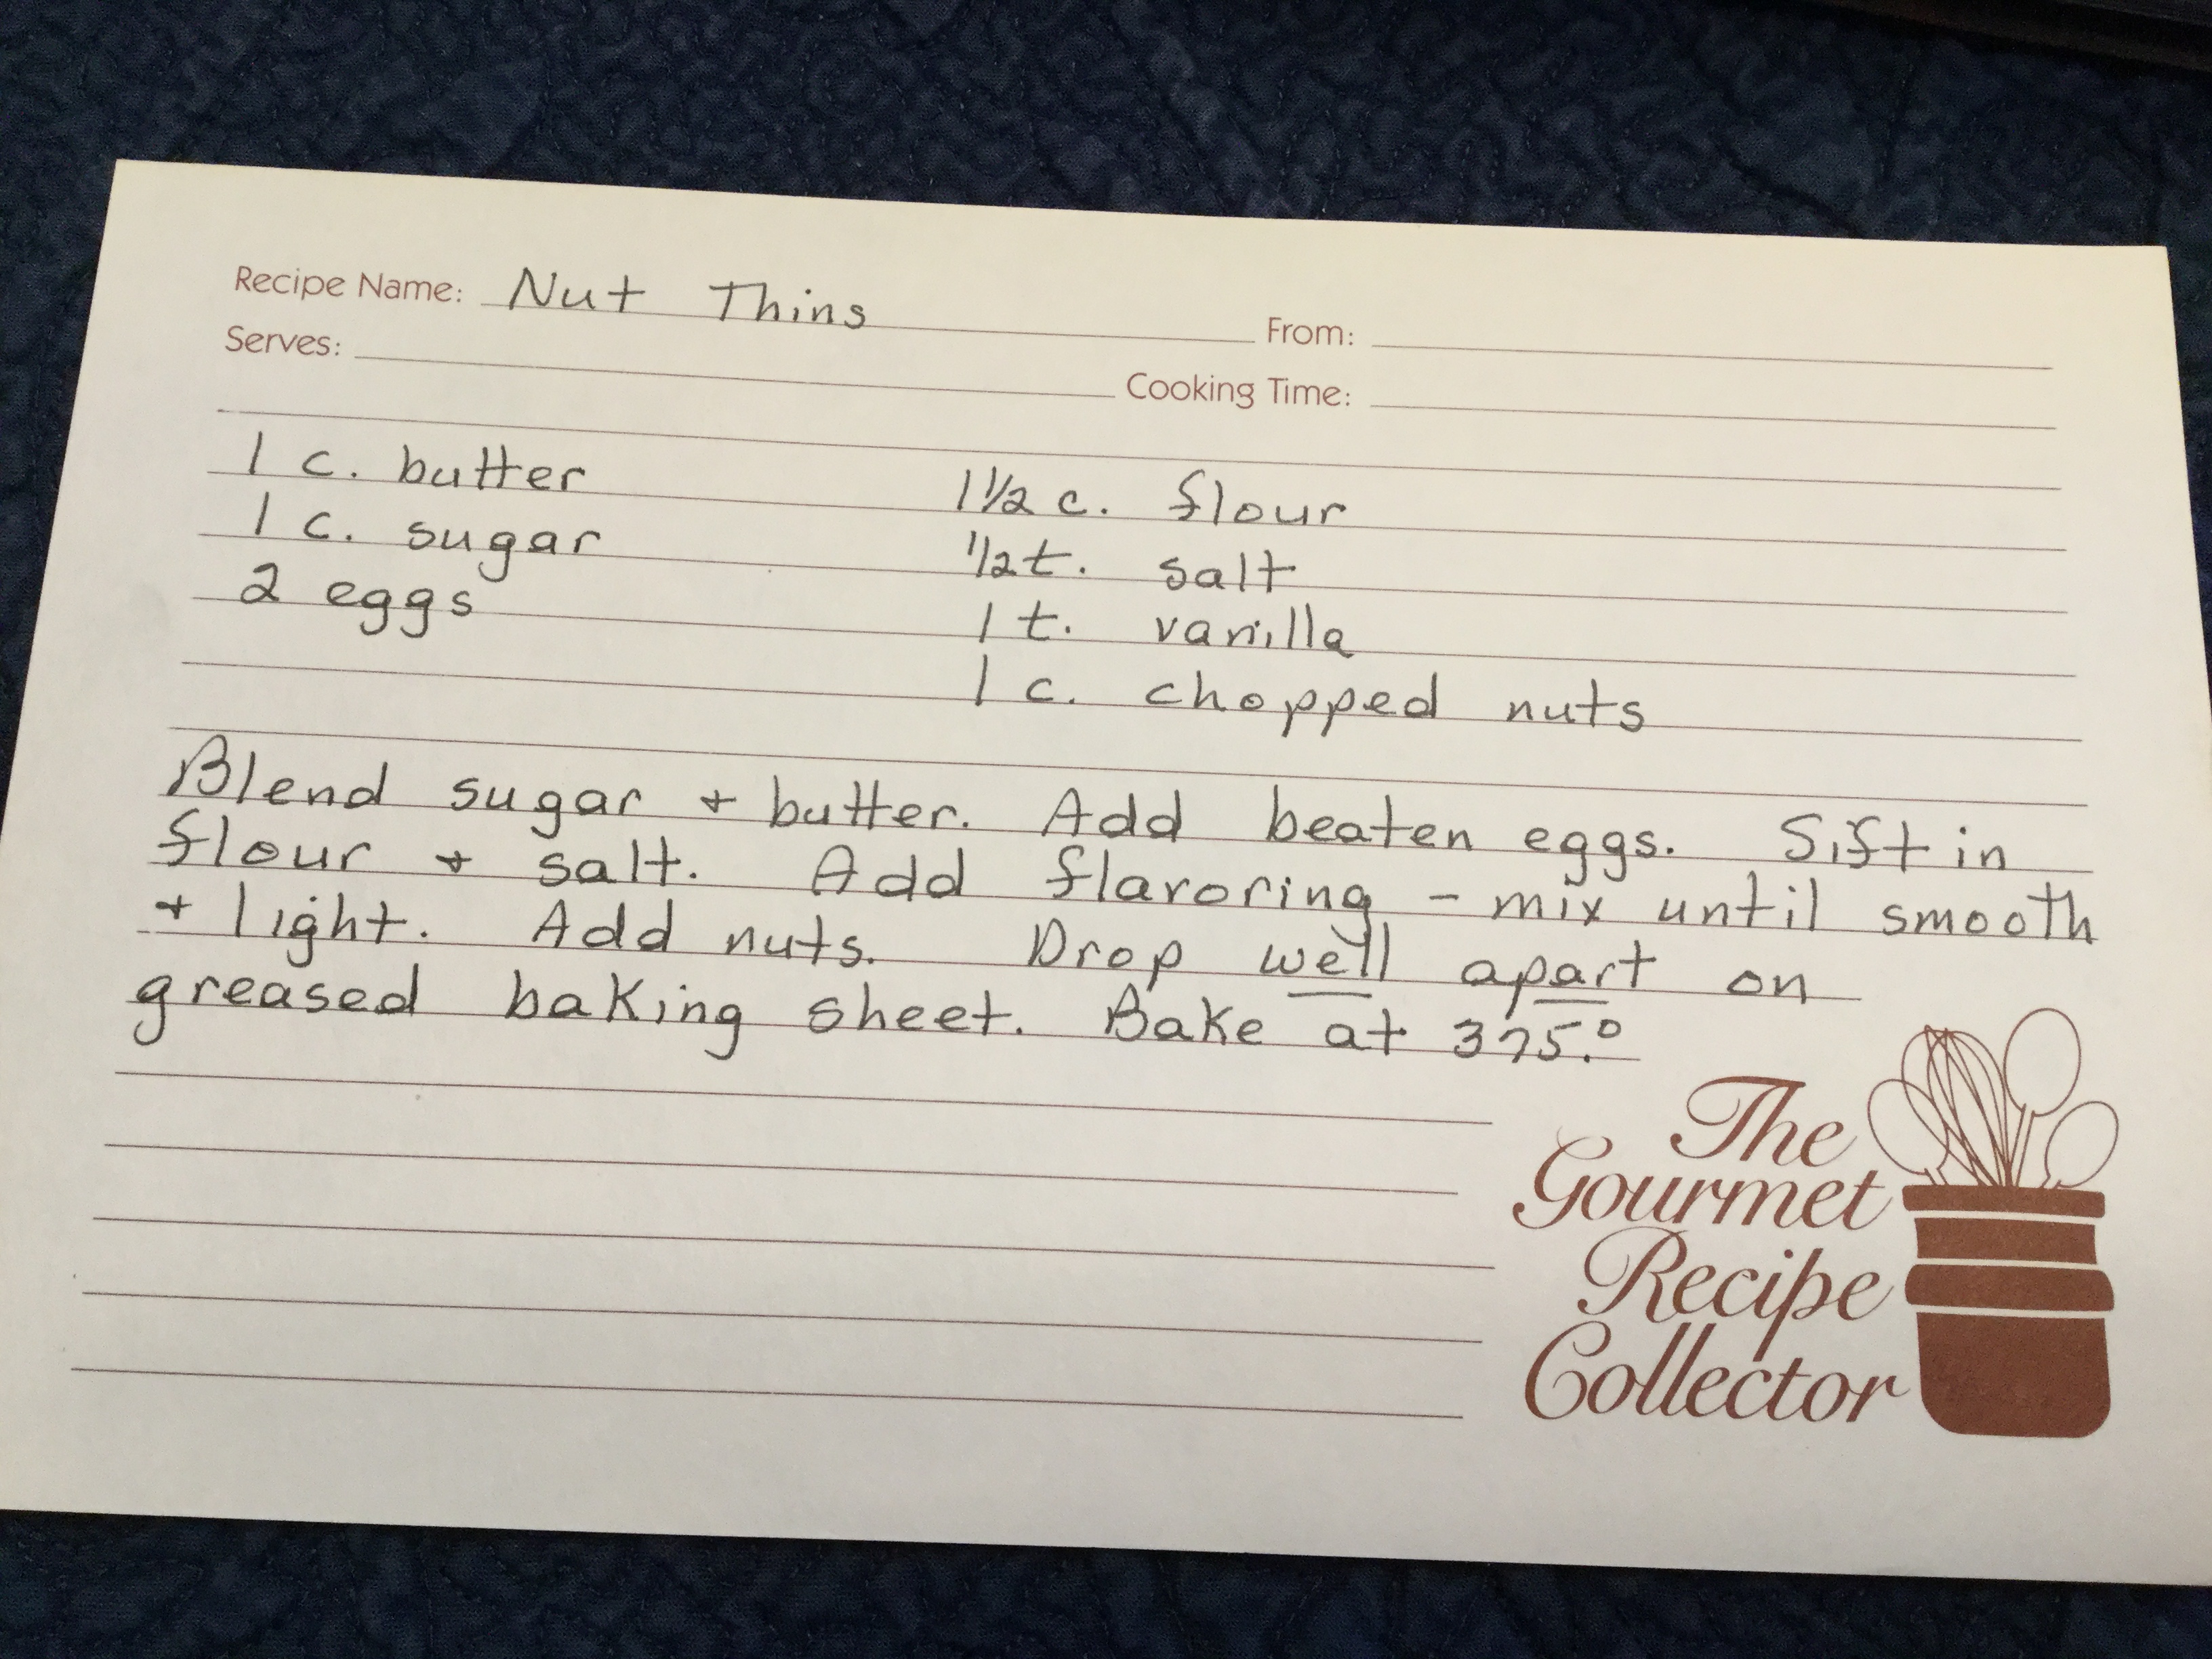 Recipe Name: Nut Thins From:
Serves: Cooking Time:
1 c. butter 1 1/2 c. flour
1 c. sugar 1/2 t. salt
2 eggs 1 t. vanilla
1 c. chopped nuts
Blend sugar + butter. Add beaten eggs. Sift in
flour + salt. Add flavoring - mix until smooth
+ light. Add nuts. Drop well apart on
greased baking sheet. Bake at 375.°
The
Gourmet
Recipe
Collector